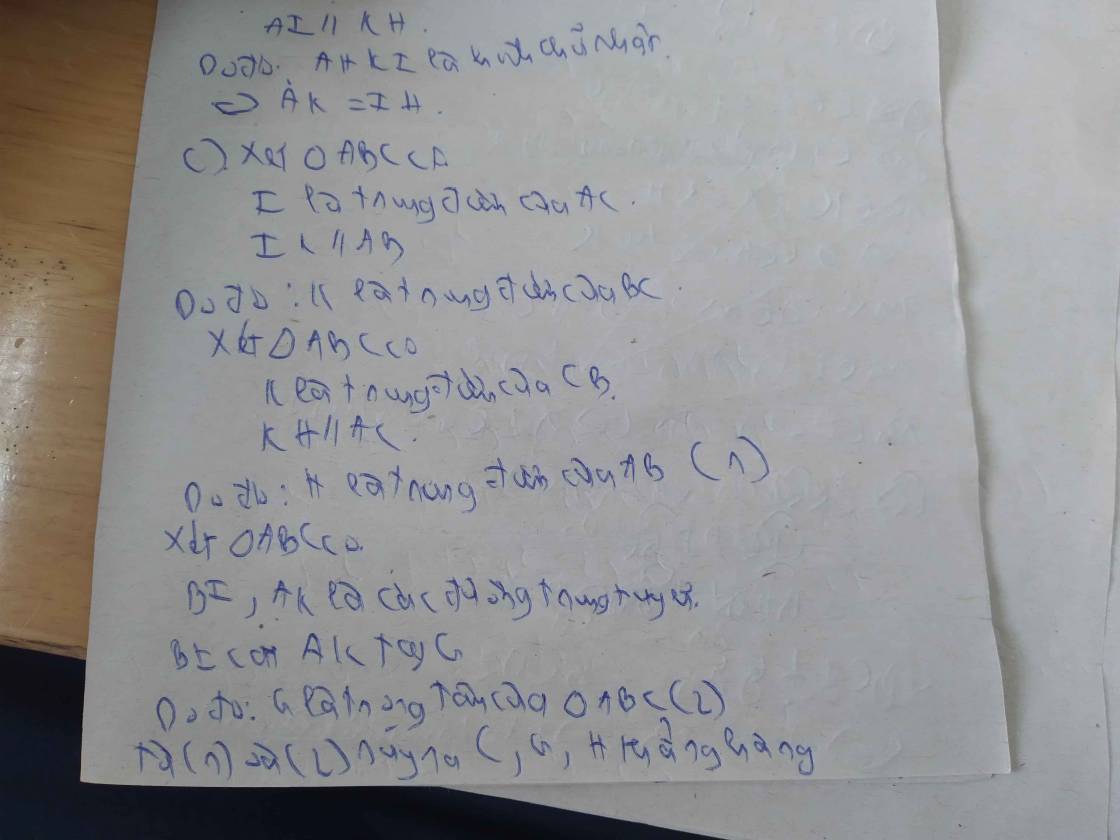 AI // KH.
Do đó: AHKI là hình chữ nhật.
=> AK = IH.
c) Xét △ABC có
I là trung điểm của AC.
IK // AB
Do đó: K là trung điểm của BC.
Xét △ABC có
K là trung điểm của CB.
KH // AC.
Do đó: H là trung điểm của AB (1)
Xét △ABC có
BI, AK là các đường trung tuyến.
BI cắt AK tại G
Do đó: G là trọng tâm của △ABC (2)
Từ (1) và (2) suy ra C, G, H thẳng hàng